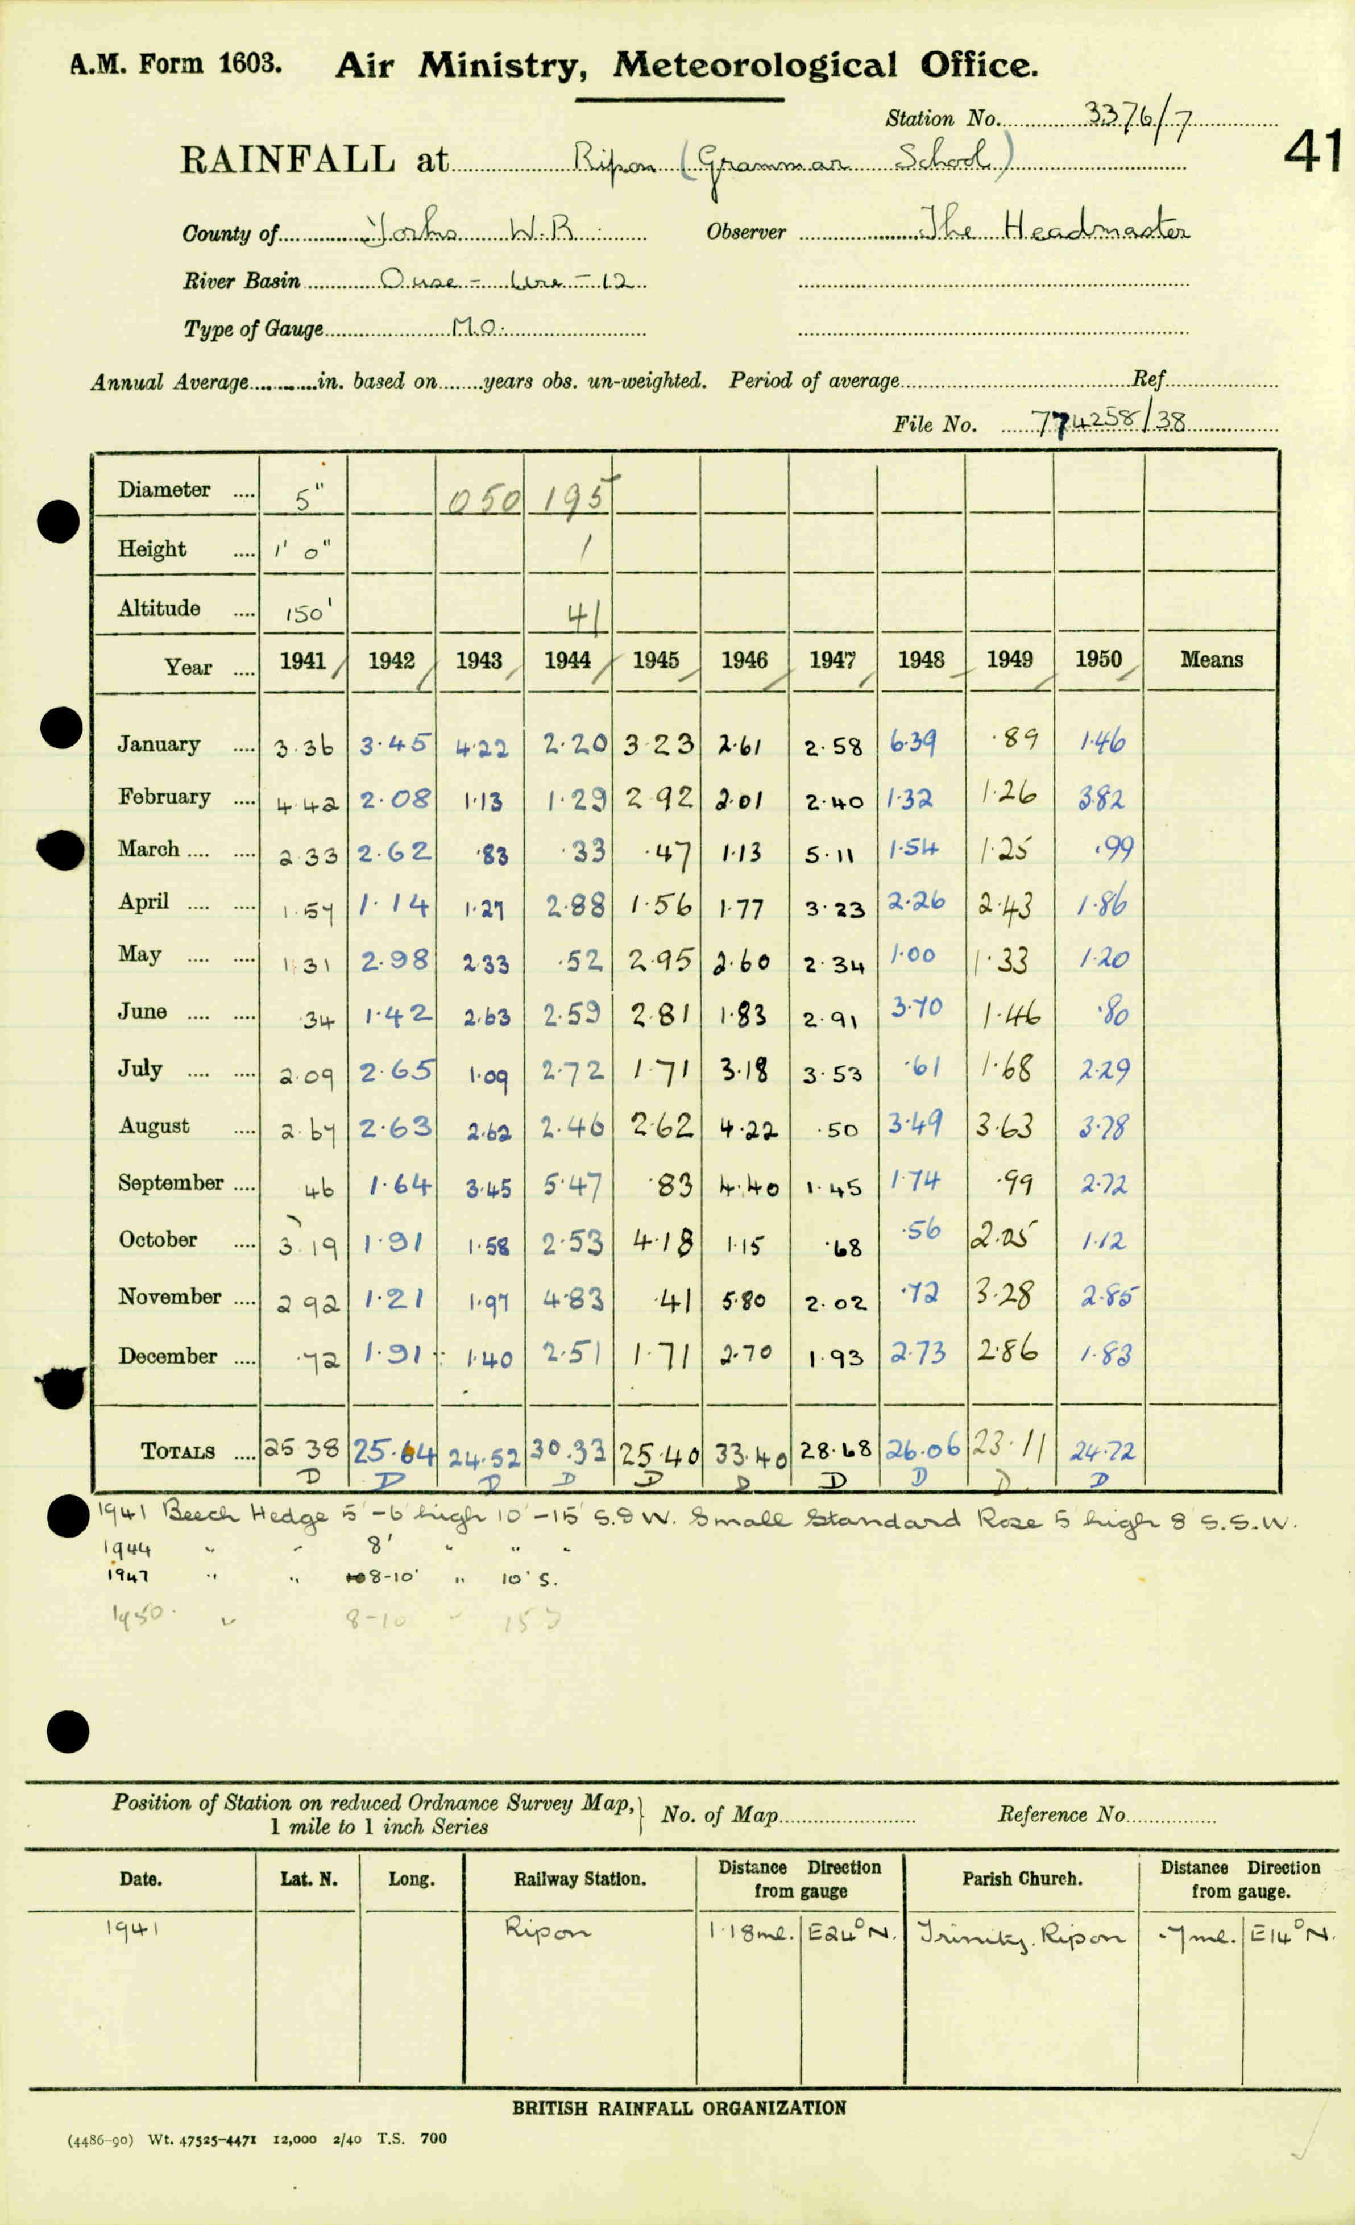 A.M. Form 1603. Air Ministry, Meteorological Office.
Station No. 3376/7
41
RAINFALL at Ripon (Grammar School)
County of Yorks W.R. Observer The Headmaster
River Basin Ouse - Ure - 12
Type of Gauge M.O.
Annual Average in. based on years obs. un-weighted. Period of average Ref.
File No. 774258/38
Diameter 5" 050 195
Height 1' 0" 1
Altitude 150' 41
Year 1941 1942 1943 1944 1945 1946 1947 1948 1949 1950 Means
January 3.36 3.45 4.22 2.20 3.23 2.61 2.58 6.39 .89 1.46
February 4.42 2.08 1.13 1.29 2.92 2.01 2.40 1.32 1.26 3.82
March 2.33 2.62 .83 .33 .47 1.13 5.11 1.54 1.25 .99
April 1.57 1.14 1.27 2.88 1.56 1.77 3.23 2.26 2.43 1.86
May 1.31 2.98 2.33 .52 2.95 2.60 2.34 1.00 1.33 1.20
June .34 1.42 2.63 2.59 2.81 1.83 2.91 3.70 1.46 .80
July 2.09 2.65 1.09 2.72 1.71 3.18 3.53 .61 1.68 2.29
August 2.67 2.63 2.62 2.46 2.62 4.22 .50 3.49 3.63 3.78
September .46 1.64 3.45 5.47 .83 4.40 1.45 1.74 .99 2.72
October 3.19 1.91 1.58 2.53 4.18 1.15 .68 .56 2.05 1.12
November 2.92 1.21 1.97 4.83 .41 5.80 2.02 .72 3.28 2.85
December .72 1.91 1.40 2.51 1.71 2.70 1.93 2.73 2.86 1.83
TOTALS 25.38 25.64 24.52 30.33 25.40 33.40 28.68 26.06 23.11 24.72
D D D D D D D D D D
1941 Beech Hedge 5'-6' high 10'-15' S.S.W. Small Standard Rose 5' high 8' S.S.W.
1944 " " 8' " " "
1947 " " 8-10' " 10' S.
1950. " 8-10 " 15
Position of Station on reduced Ordnance Survey Map, 1 mile to 1 inch Series No. of Map Reference No.
Date. Lat. N. Long. Railway Station. Distance Direction from gauge Parish Church. Distance Direction from gauge.
1941 Ripon 1.18ml. E24°N. Trinity, Ripon .7ml. E14°N.
BRITISH RAINFALL ORGANIZATION
(4486-90) Wt. 47525-4471 12,000 2/40 T.S. 700